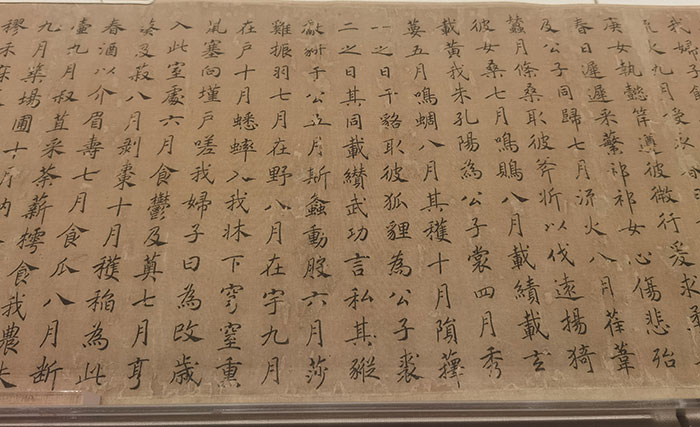 我婦子
火九月受衣春
庚女執懿筐遵彼微行爰求柔
春日遲遲采蘩祁祁女心傷悲殆
及公子同歸七月流火八月萑葦
蠶月條桑取彼斧斨以伐遠揚猗
彼女桑七月鳴鵙八月載績載玄
載黃我朱孔陽為公子裳四月秀
葽五月鳴蜩八月其穫十月隕蘀
一之日于貉取彼狐貍為公子裘
二之日其同載纘武功言私其豵
獻豜于公五月斯螽動股六月莎
雞振羽七月在野八月在宇九月
在戶十月蟋蟀入我牀下穹窒熏
鼠塞向墐戶嗟我婦子曰為改歲
入此室處六月食鬱及薁七月亨
葵及菽八月剝棗十月穫稻為此
春酒以介眉壽七月食瓜八月斷
壺九月叔苴采荼薪樗食我農夫
九月築場圃十月納
穋禾麻